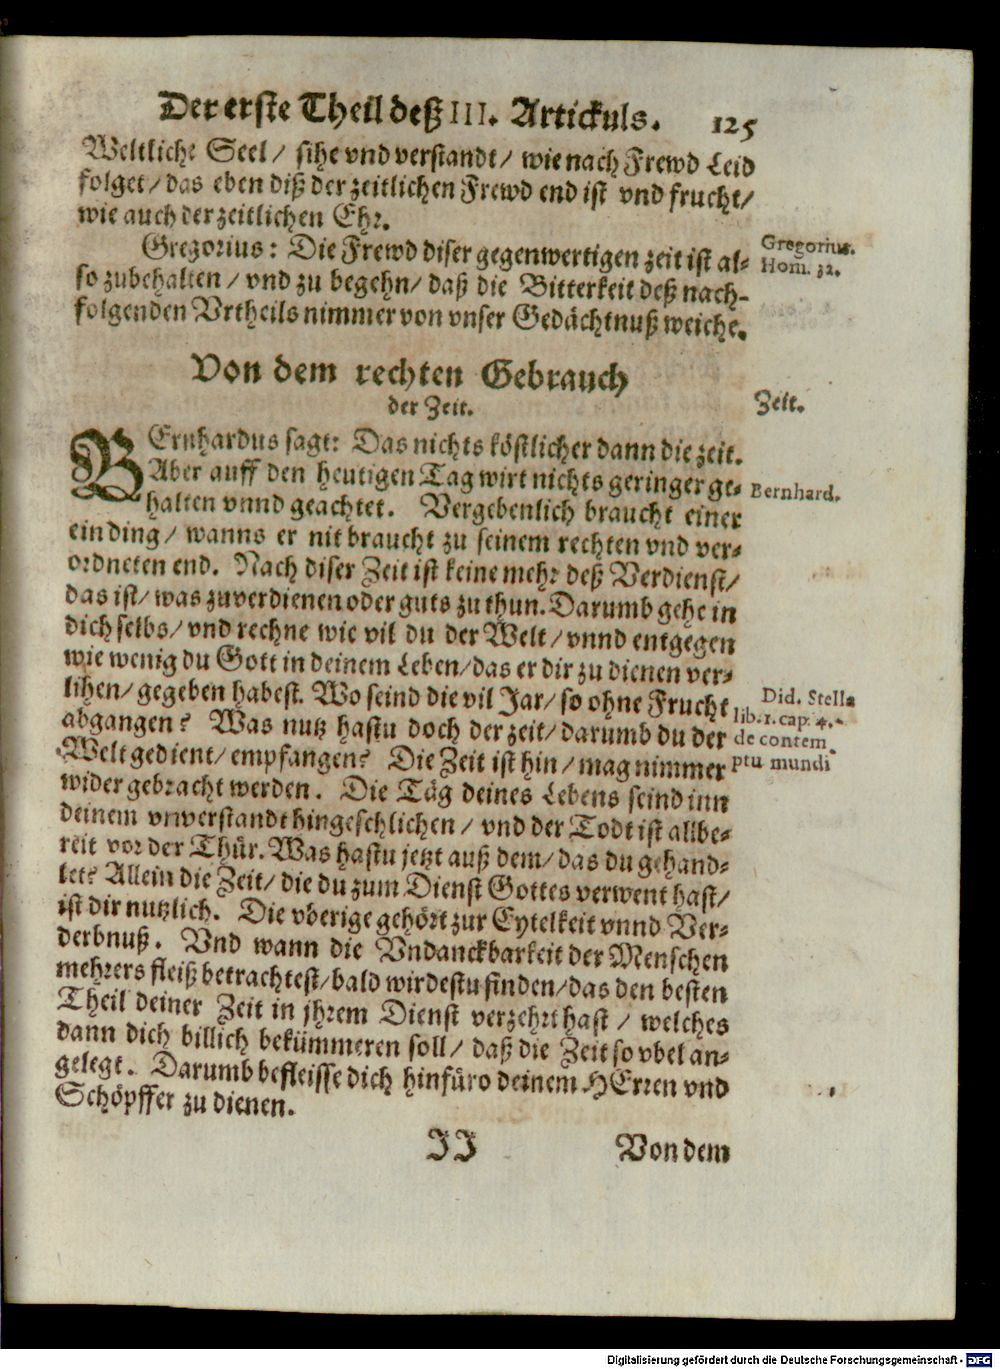 Der erste Theil deß III. Artickuls. 125
Weltliche Seel / sihe vnd verstandt / wie nach Frewd Leid
folget / das eben diß der zeitlichen Frewd end ist vnd frucht /
wie auch der zeitlichen Ehr.
Gregorius: Die Frewd diser gegenwertigen zeit ist al-
so zubehalten / vnd zu begehn / daß die Bitterkeit deß nach-
folgenden Vrtheils nimmer von vnser Gedächtnuß weiche.
Gregorius.
Hom. 32.
Von dem rechten Gebrauch
der Zeit.
Zeit.
BErnhardus sagt: Das nichts köstlicher dann die zeit.
Aber auff den heutigen Tag wirt nichts geringer ge-
halten vnnd geachtet. Vergebenlich braucht einer
ein ding / wanns er nit braucht zu seinem rechten vnd ver-
ordneten end. Nach diser Zeit ist keine mehr deß Verdienst /
das ist / was zuverdienen oder guts zu thun. Darumb gehe in
dich selbs / vnd rechne wie vil du der Welt / vnnd entgegen
wie wenig du Gott in deinem Leben / das er dir zu dienen ver-
lihen / gegeben habest. Wo seind die vil Jar / so ohne Frucht
abgangen? Was nutz hastu doch der zeit / darumb du der
Welt gedient / empfangen? Die Zeit ist hin / mag nimmer
wider gebracht werden. Die Täg deines Lebens seind inn
deinem vnverstandt hingeschlichen / vnd der Todt ist allbe-
reit vor der Thür. Was hastu jetzt auß dem / das du gehand-
let? Allein die Zeit / die du zum Dienst Gottes verwent hast /
ist dir nutzlich. Die vberige gehört zur Eytelkeit vnnd Ver-
derbnuß. Vnd wann die Vndanckbarkeit der Menschen
mehrers fleiß betrachtest / bald wirdestu finden / das den besten
Theil deiner Zeit in jhrem Dienst verzehrt hast / welches
dann dich billich bekümmeren soll / daß die Zeit so vbel an-
gelegt. Darumb befleisse dich hinfüro deinem HErren vnd
Schöpffer zu dienen.
Bernhard.
Did. Stella
lib. 1. cap. 4.
de contem
ptu mundi
II Von dem
Digitalisierung gefördert durch die Deutsche Forschungsgemeinschaft - DFG